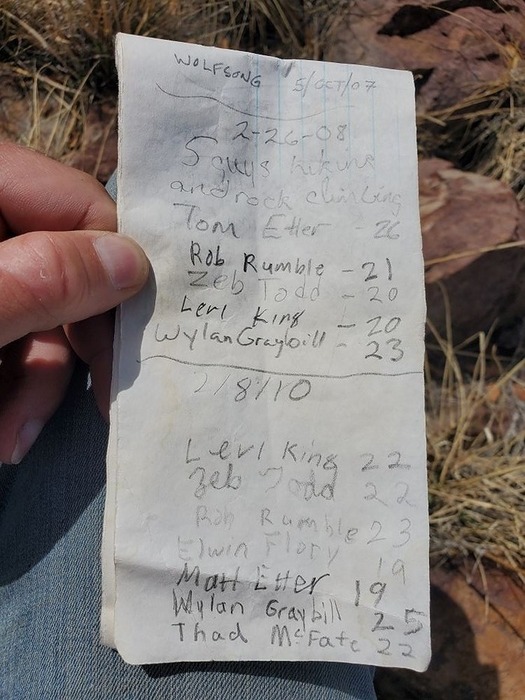 WOLFSONG 5/OCT/07
2-26-08
5 guys hiking
and rock climbing
Tom Etter - 26
Rob Rumble - 21
Zeb Todd - 20
Levi King - 20
Wylan Graybill - 23
2/8/10
Levi King 22
Zeb Todd 22
Rob Rumble 23
Elwin Flory 19
Matt Etter 19
Wylan Graybill 25
Thad McFate 22